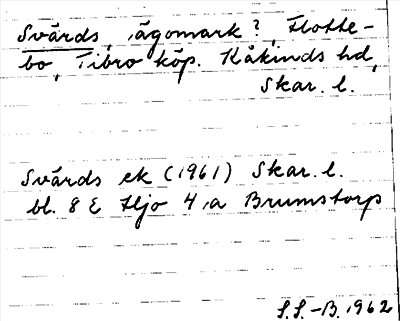 Svärds, ägomark?, Flotte-
bo, Tibro köp. Kåkinds hd,
Skar. l.
Svärds ek (1961) Skar. l.
bl. 8 E Hjo 4, a Brumstorp
S.S.-B. 1962